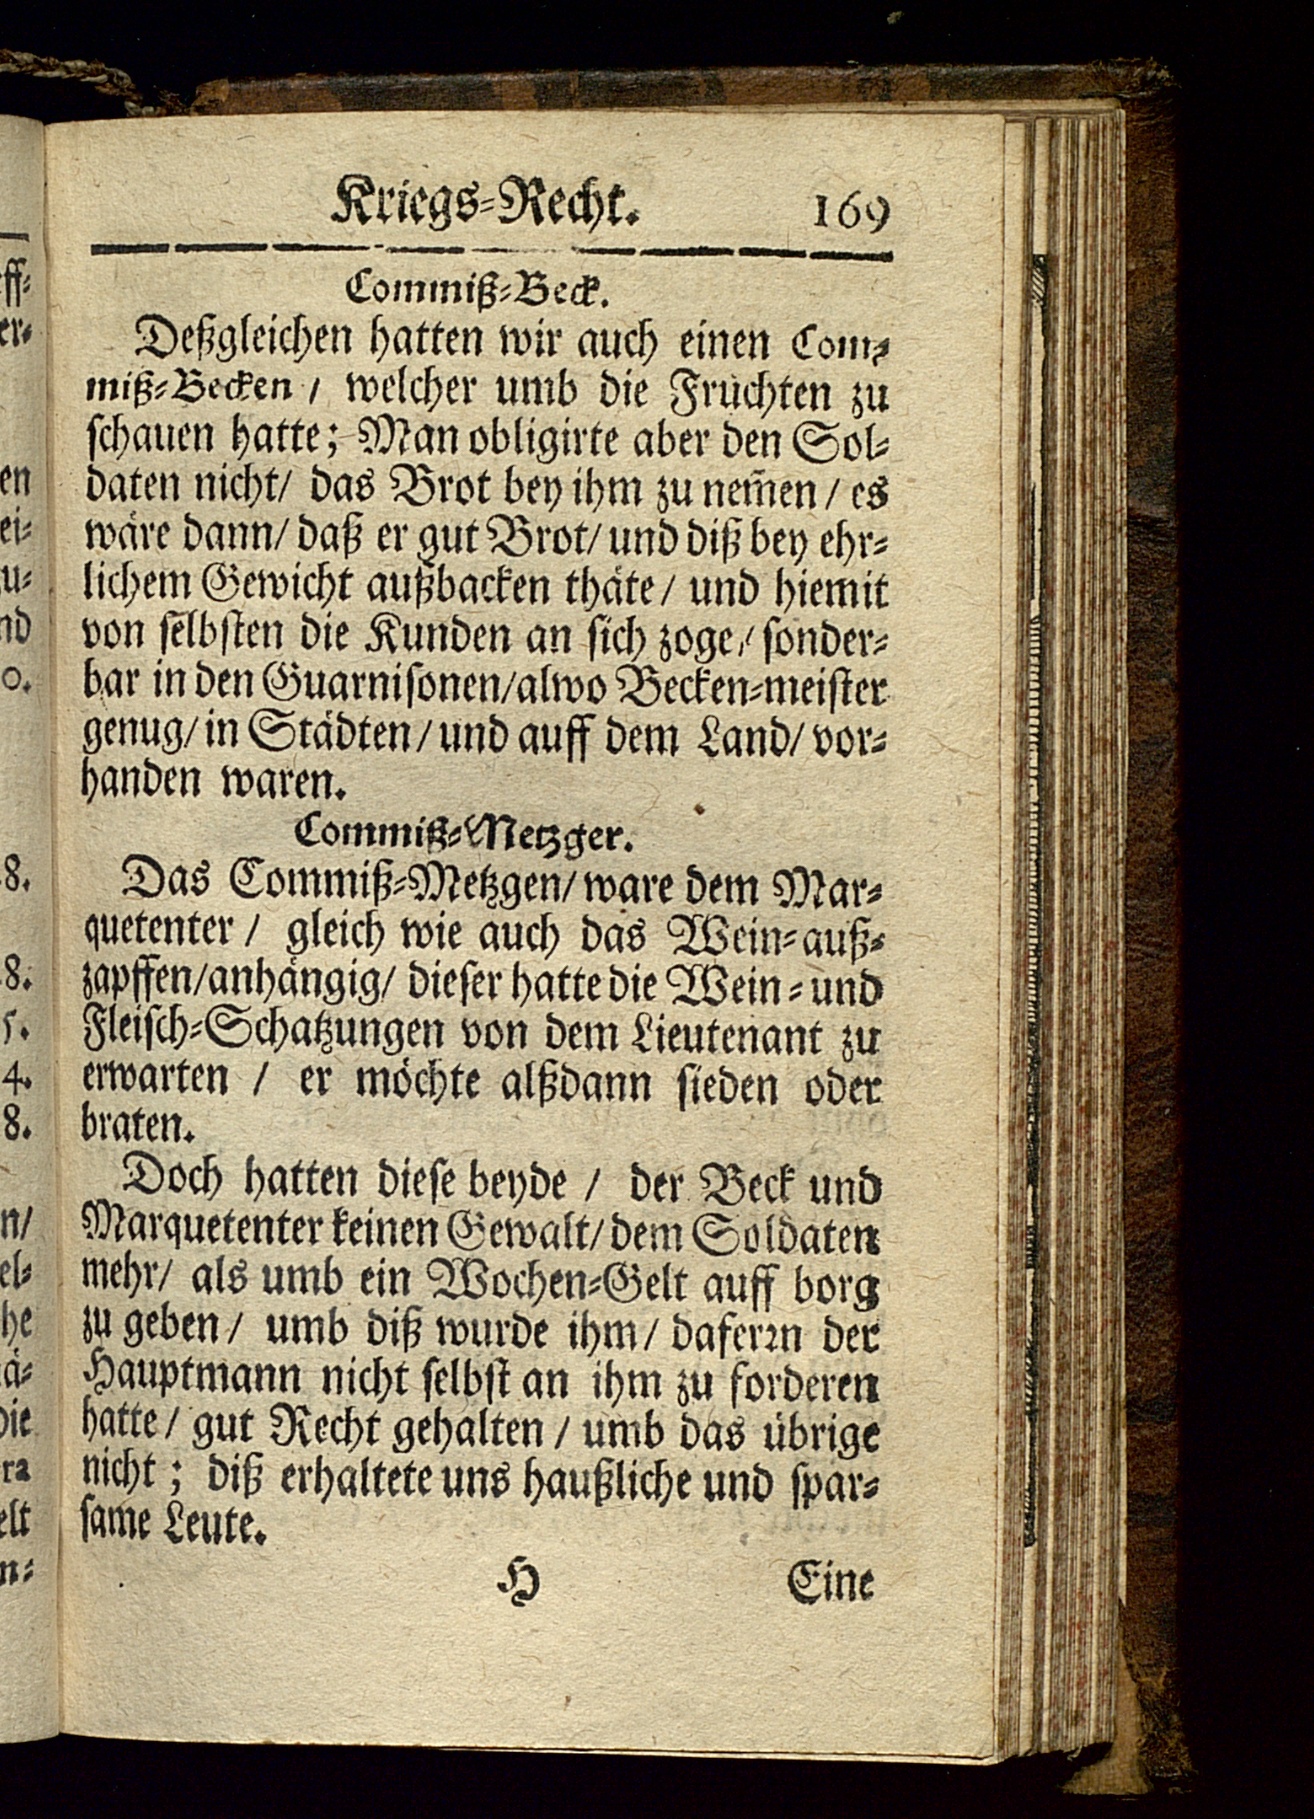 Kriegs-Recht. 169
Commiß-Beck.
Deßgleichen hatten wir auch einen Com-
miß-Becken / welcher umb die Früchten zu
schauen hatte; Man obligirte aber den Sol-
daten nicht/ das Brot bey ihm zu nem̃en / es
wäre dann/ daß er gut Brot/ und diß bey ehr-
lichem Gewicht außbacken thäte / und hiemit
von selbsten die Kunden an sich zoge / sonder-
bar in den Guarnisonen/alwo Becken-meister
genug/ in Städten / und auff dem Land/ vor-
handen waren.
Commiß-Metzger.
Das Commiß-Metzgen/ ware dem Mar-
quetenter / gleich wie auch das Wein-auß-
zapffen/anhängig/ dieser hatte die Wein- und
Fleisch-Schatzungen von dem Lieutenant zu
erwarten / er möchte alßdann sieden oder
braten.
Doch hatten diese beyde / der Beck und
Marquetenter keinen Gewalt/ dem Soldaten
mehr/ als umb ein Wochen-Gelt auff borg
zu geben / umb diß wurde ihm / daferrn der
Hauptmann nicht selbst an ihm zu forderen
hatte / gut Recht gehalten / umb das übrige
nicht ; diß erhaltete uns haußliche und spar-
same Leute.
H Eine